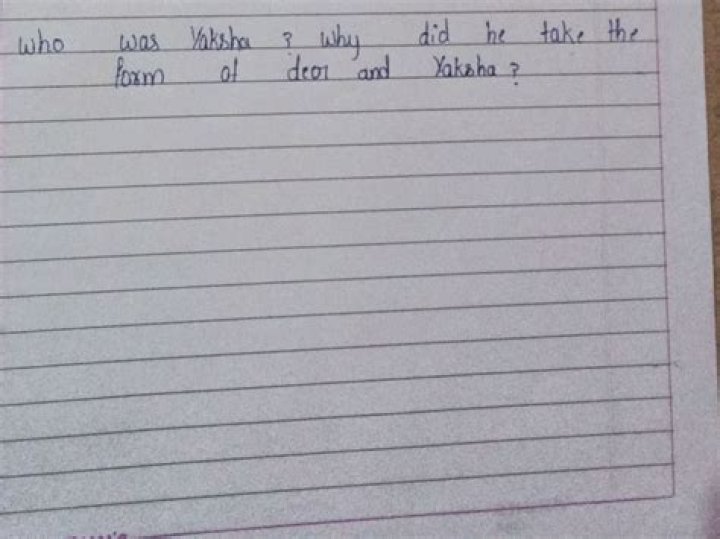 who was Yaksha ? why did he take the
form of deor and Yaksha ?